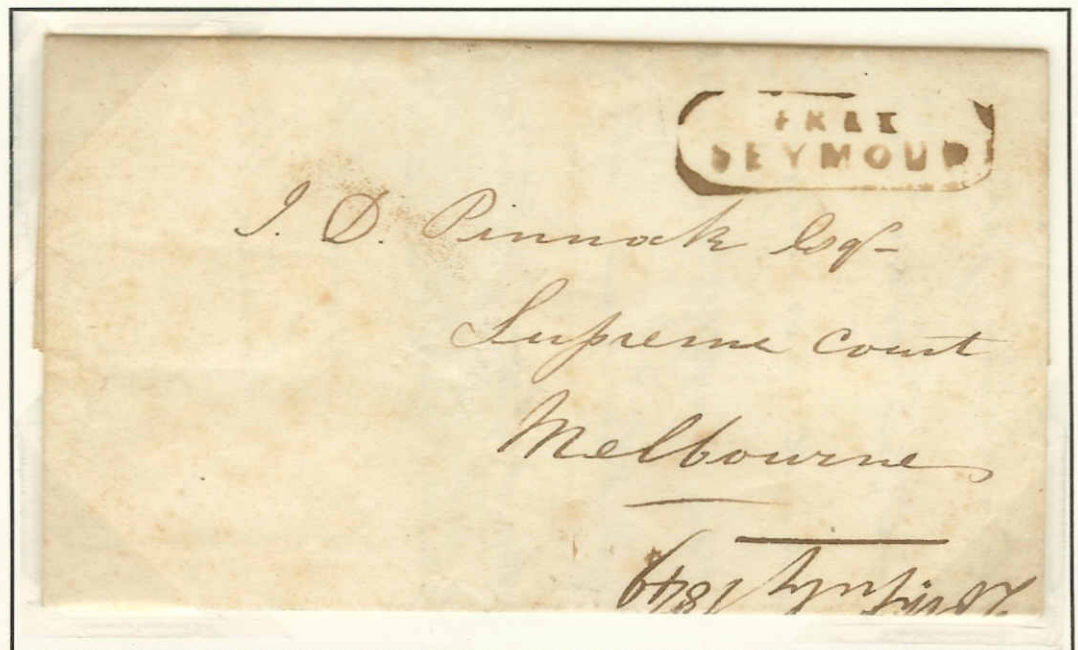 FREE
SEYMOUR
J. D. Pinnock Esqr
Supreme Court
Melbourne
July 1849